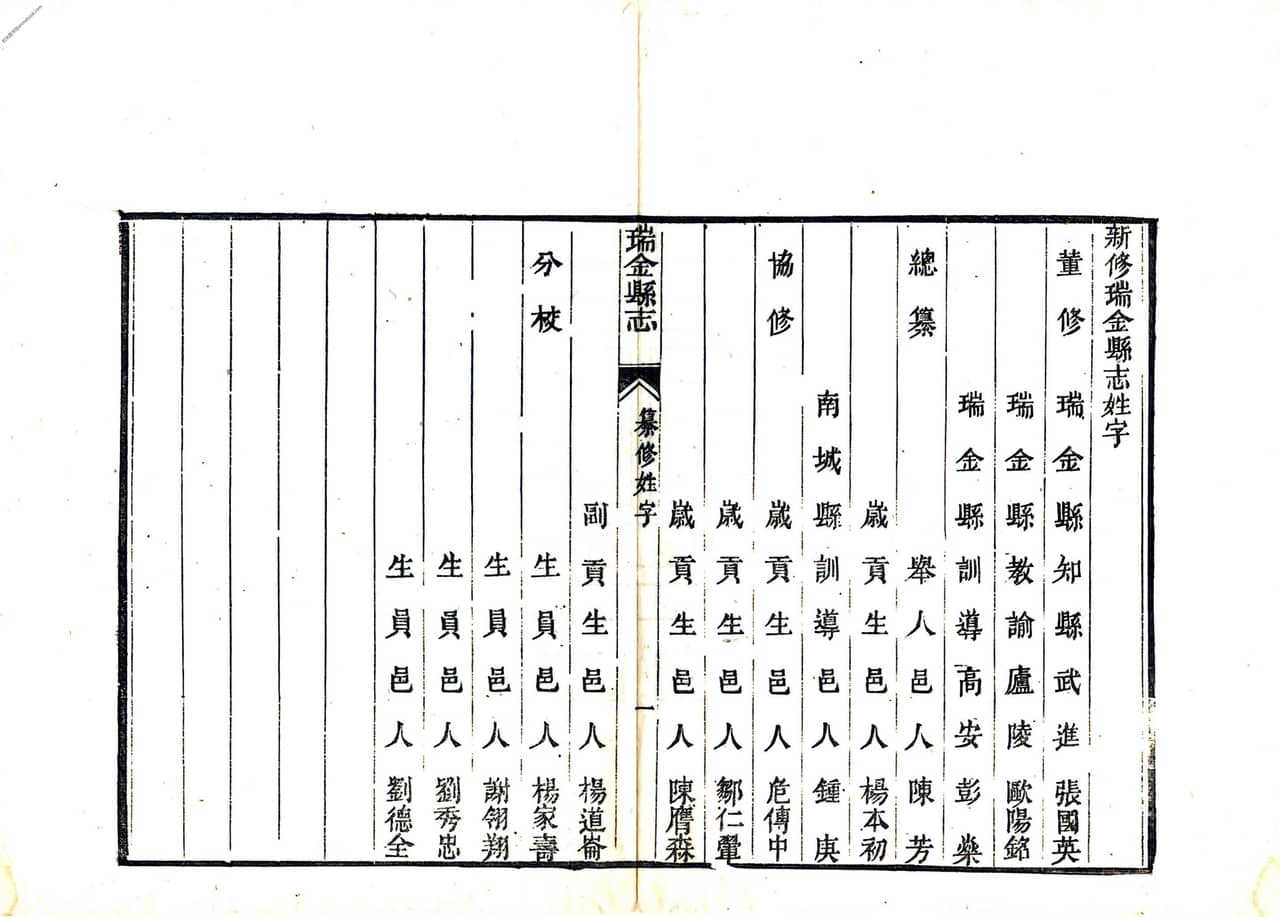 新修瑞金縣志姓字
董修 瑞金縣知縣武進張國英
瑞金縣教諭廬陵歐陽銘
瑞金縣訓導高安彭燊
總纂 舉人邑人陳芳
歲貢生邑人楊本初
南城縣訓導邑人鍾庚
協修 歲貢生邑人危傳中
歲貢生邑人鄒仁翬
歲貢生邑人陳膺森
瑞金縣志 纂修姓字 一
副貢生邑人楊道崙
分校 生員邑人楊家壽
生員邑人謝翎翔
生員邑人劉秀忠
生員邑人劉德全